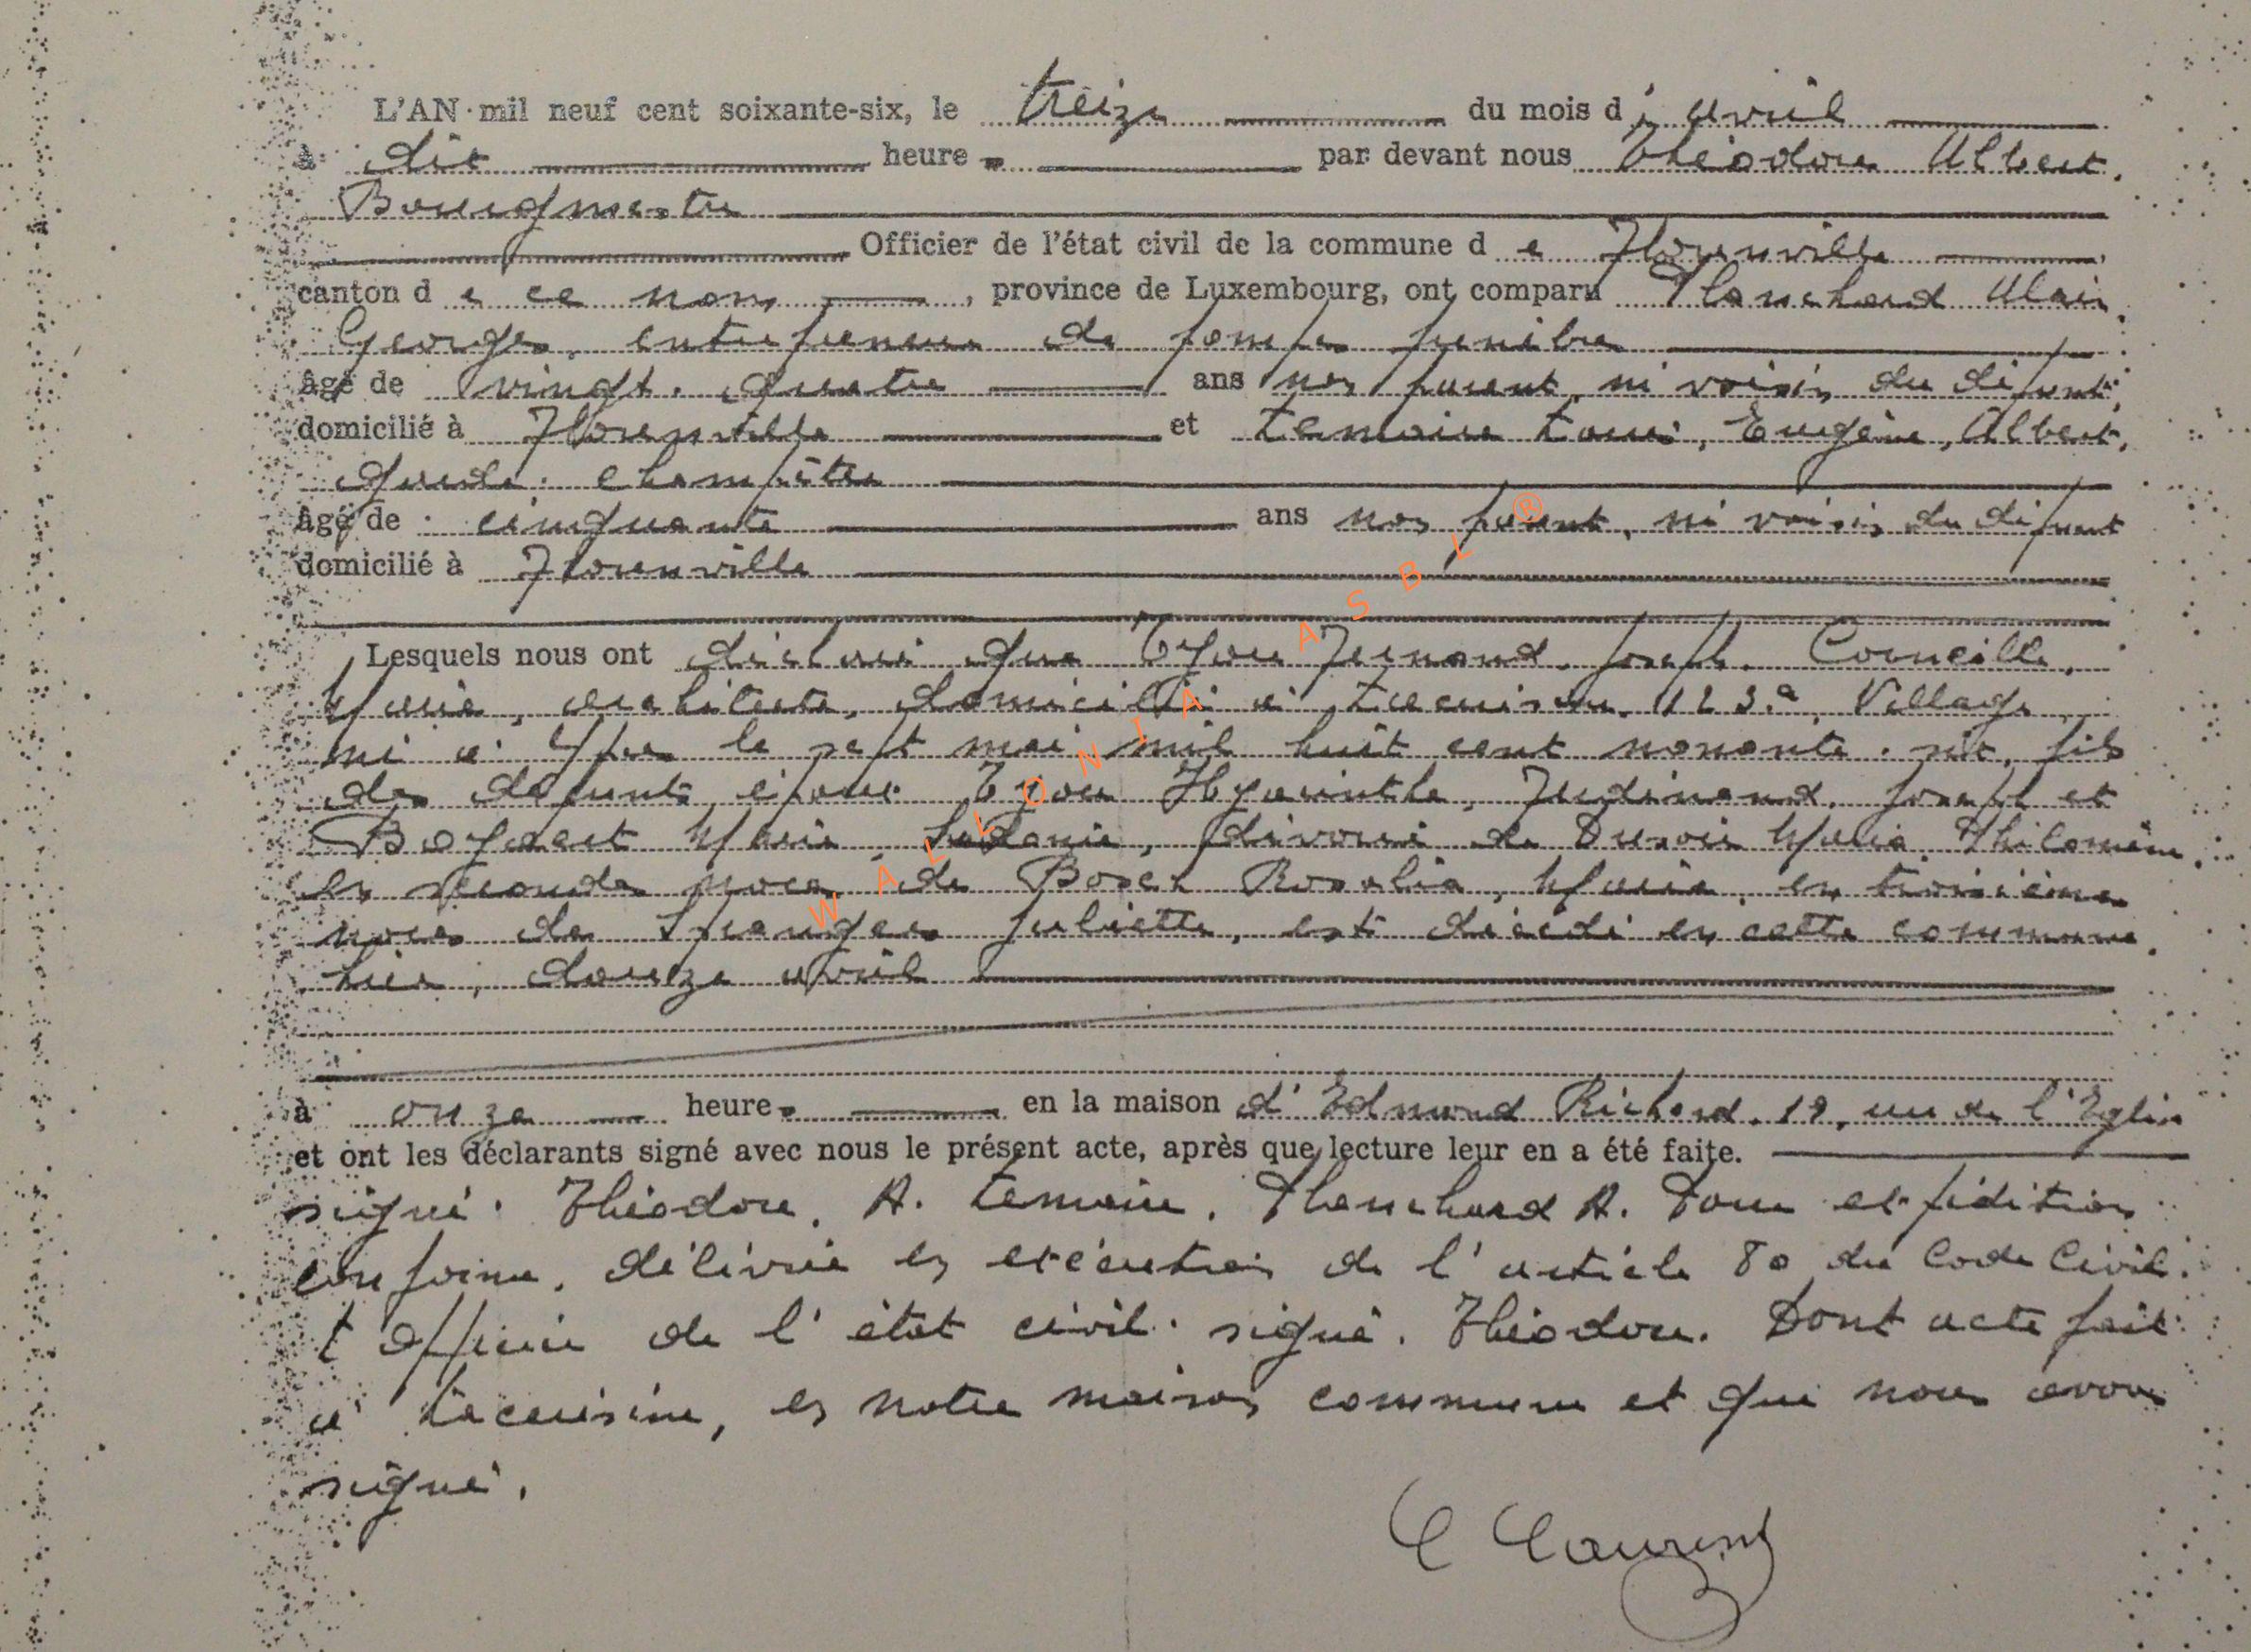 L'AN mil neuf cent soixante-six, le treize du mois d'avril
à dix heures par devant nous Théodore Albert,
Bourgmestre
Officier de l'état civil de la commune de Florenville
canton de ce nom, province de Luxembourg, ont comparu Planchard Alain
Georges, entrepreneur de pompes funèbres
âgé de vingt-quatre ans non parent, ni voisin du défunt
domicilié à Florenville et Lemaire Louis, Eugène, Albert,
garde champêtre
âgé de cinquante ans non parent, ni voisin du défunt
domicilié à Florenville
Lesquels nous ont déclaré que Tyou Fernand, Joseph, Corneille,
Marie, architecte, domicilié à Lacuisine, 123a, Village
né à Ypres le sept mai mil huit cent nonante-six, fils
des défunts époux Tyou Hyacinthe, Ferdinand, Joseph et
Marie, Sidonie, divorcé de Marie, Philomène,
en secondes noces de Rosalie, Marie, en troisième
noces de Juliette, est décédé en cette commune,
hier, douze avril
à onze heures en la maison d'Edmond Richard, 19, rue de l'Eglise
et ont les déclarants signé avec nous le présent acte, après que lecture leur en a été faite.
signé: Théodore, A. Lemaire, Planchard A. Pour expédition
conforme, délivrée en exécution de l'article 80 du Code Civil.
L'Officier de l'état civil: signé. Théodore. Dont acte fait
à Lacuisine, en notre maison commune et que nous avons
signé.
C Laurent
WALLONIA ASBL ®